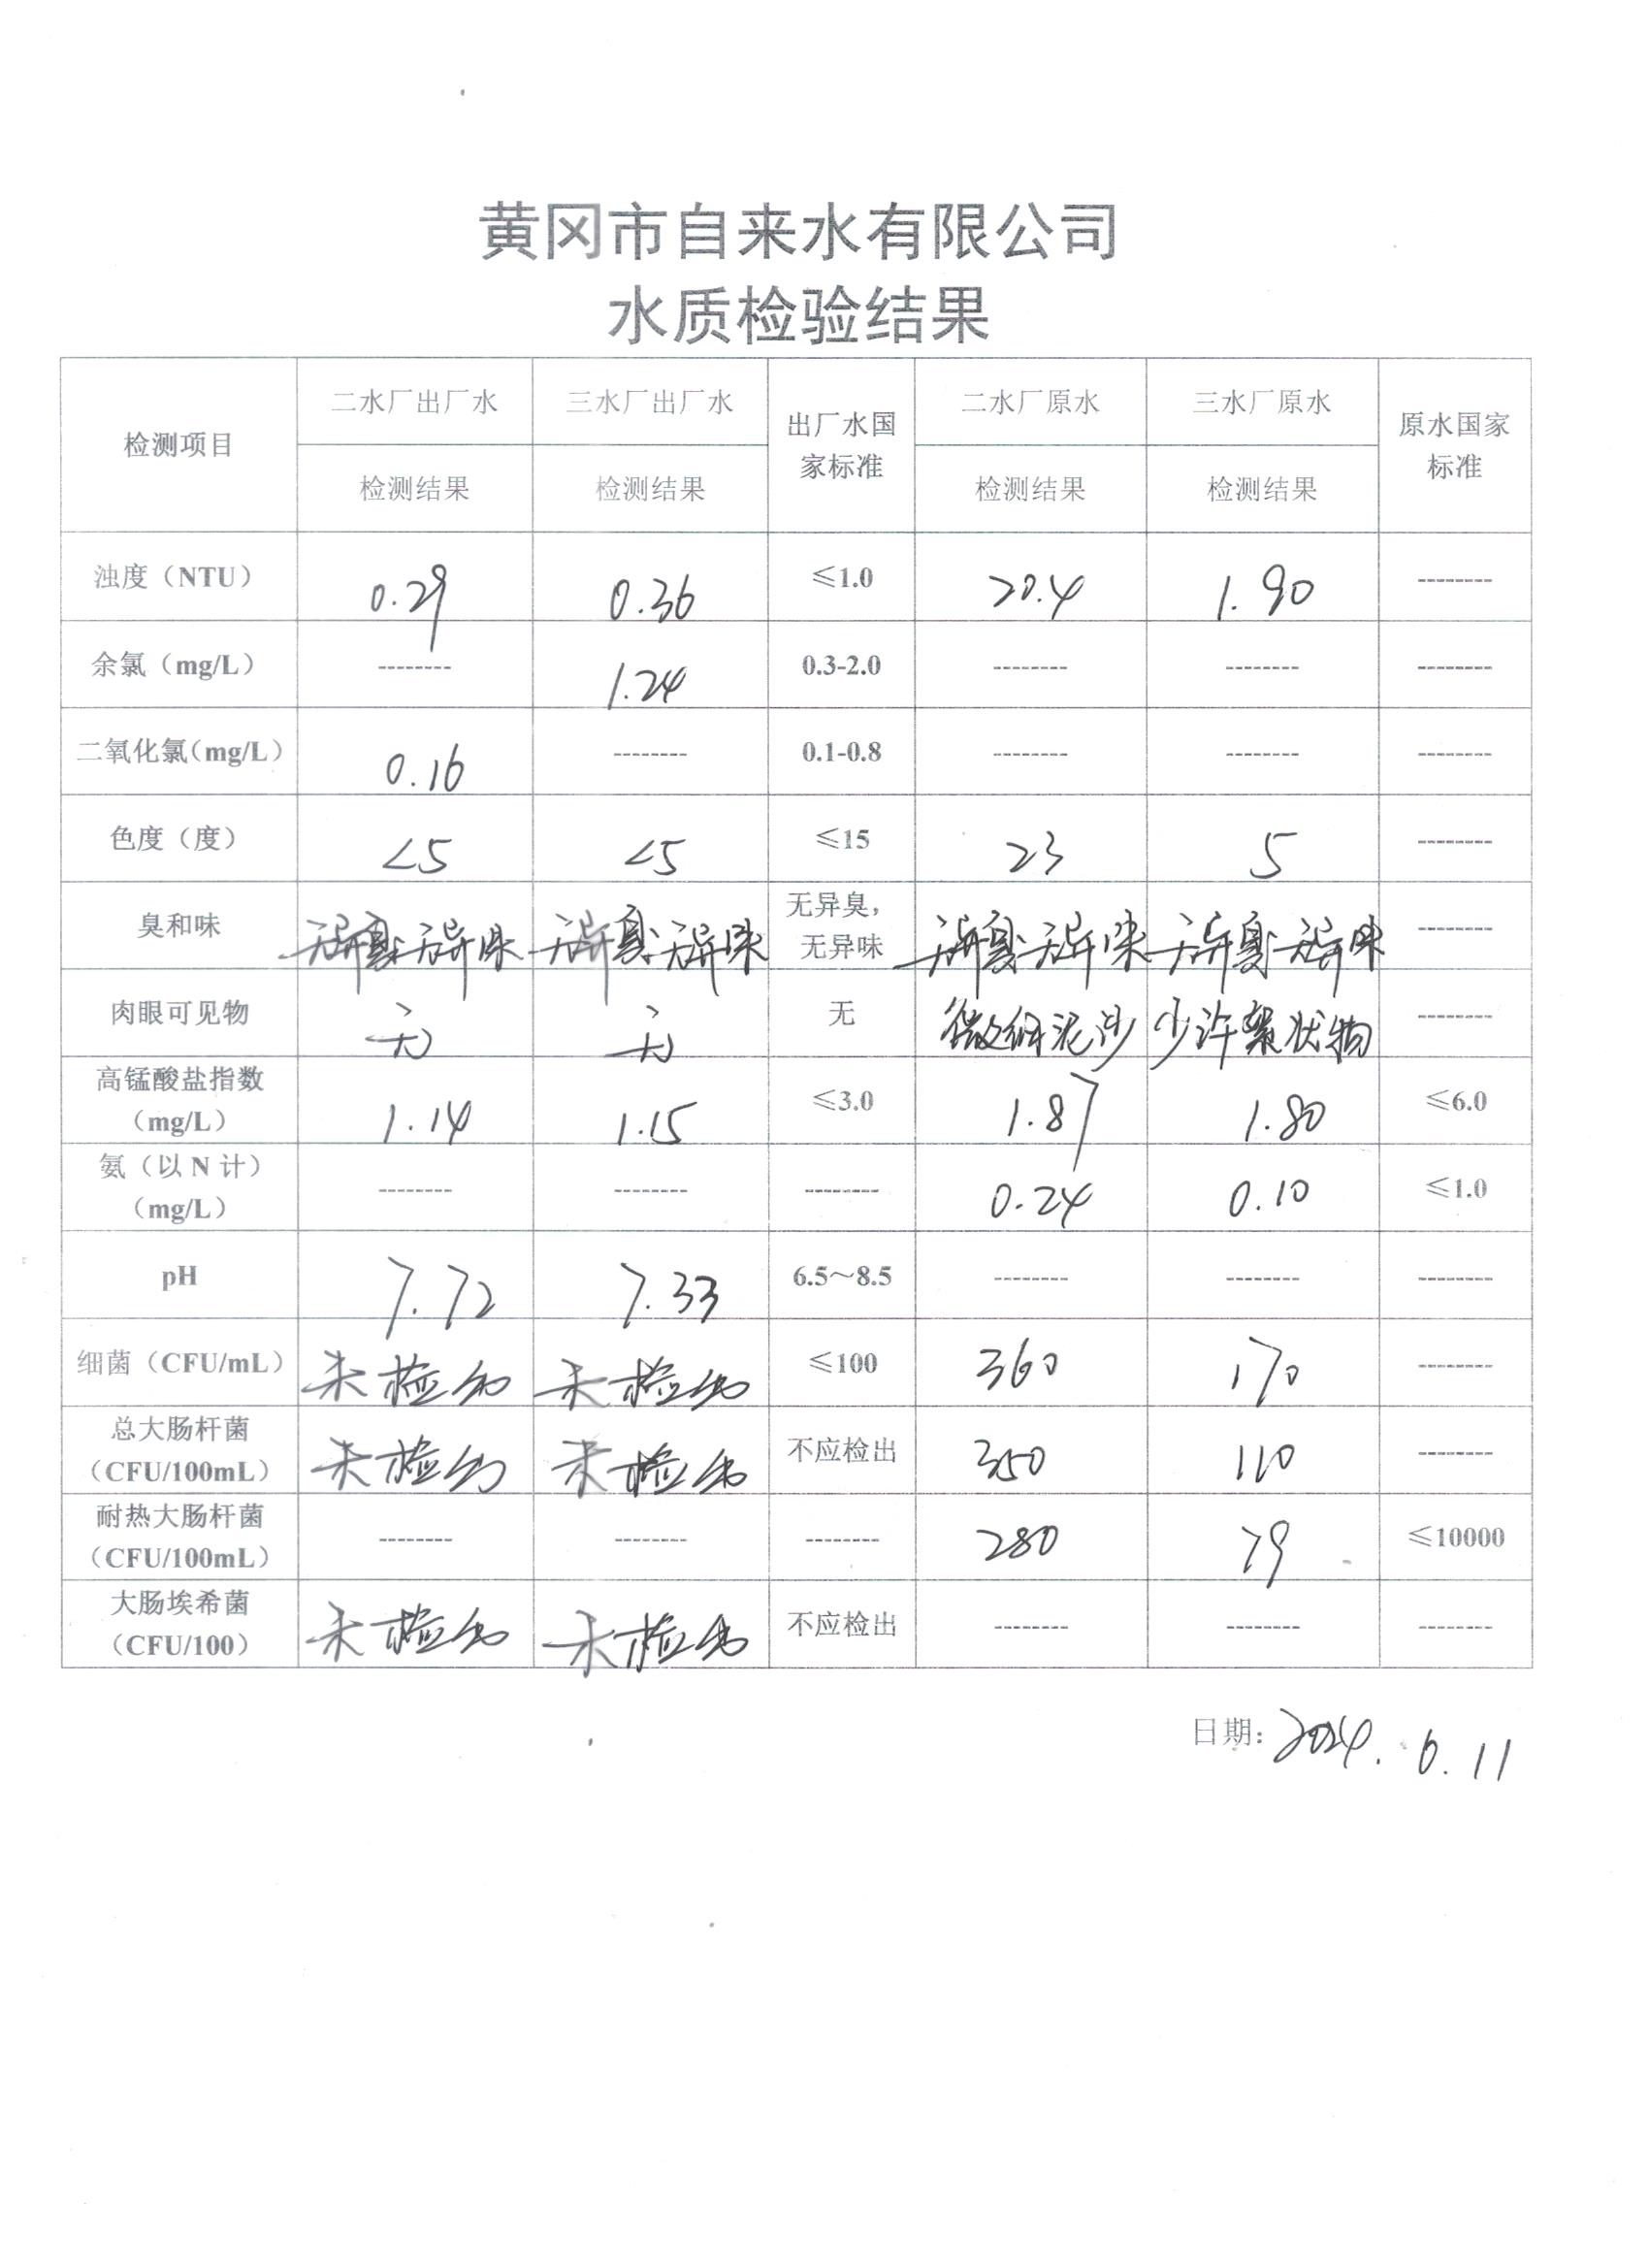 黄冈市自来水有限公司
水质检验结果
检测项目 二水厂出厂水 三水厂出厂水 出厂水国家标准 二水厂原水 三水厂原水 原水国家标准
检测结果 检测结果 检测结果 检测结果
浊度（NTU） 0.29 0.36 ≤1.0 20.4 1.90 --------
余氯（mg/L） -------- 1.24 0.3-2.0 -------- -------- --------
二氧化氯（mg/L） 0.16 -------- 0.1-0.8 -------- -------- --------
色度（度） <5 <5 ≤15 23 5 --------
臭和味 无异臭、无异味 无异臭、无异味 无异臭，无异味 无异臭、无异味 无异臭、无异味 --------
肉眼可见物 无 无 无 微细泥沙 少许絮状物 --------
高锰酸盐指数（mg/L） 1.14 1.15 ≤3.0 1.87 1.80 ≤6.0
氨（以 N 计）（mg/L） -------- -------- -------- 0.24 0.10 ≤1.0
pH 7.72 7.33 6.5～8.5 -------- -------- --------
细菌（CFU/mL） 未检出 未检出 ≤100 360 170 --------
总大肠杆菌（CFU/100mL） 未检出 未检出 不应检出 350 110 --------
耐热大肠杆菌（CFU/100mL） -------- -------- -------- 280 79 ≤10000
大肠埃希菌（CFU/100） 未检出 未检出 不应检出 -------- -------- --------
日期：2024.6.11